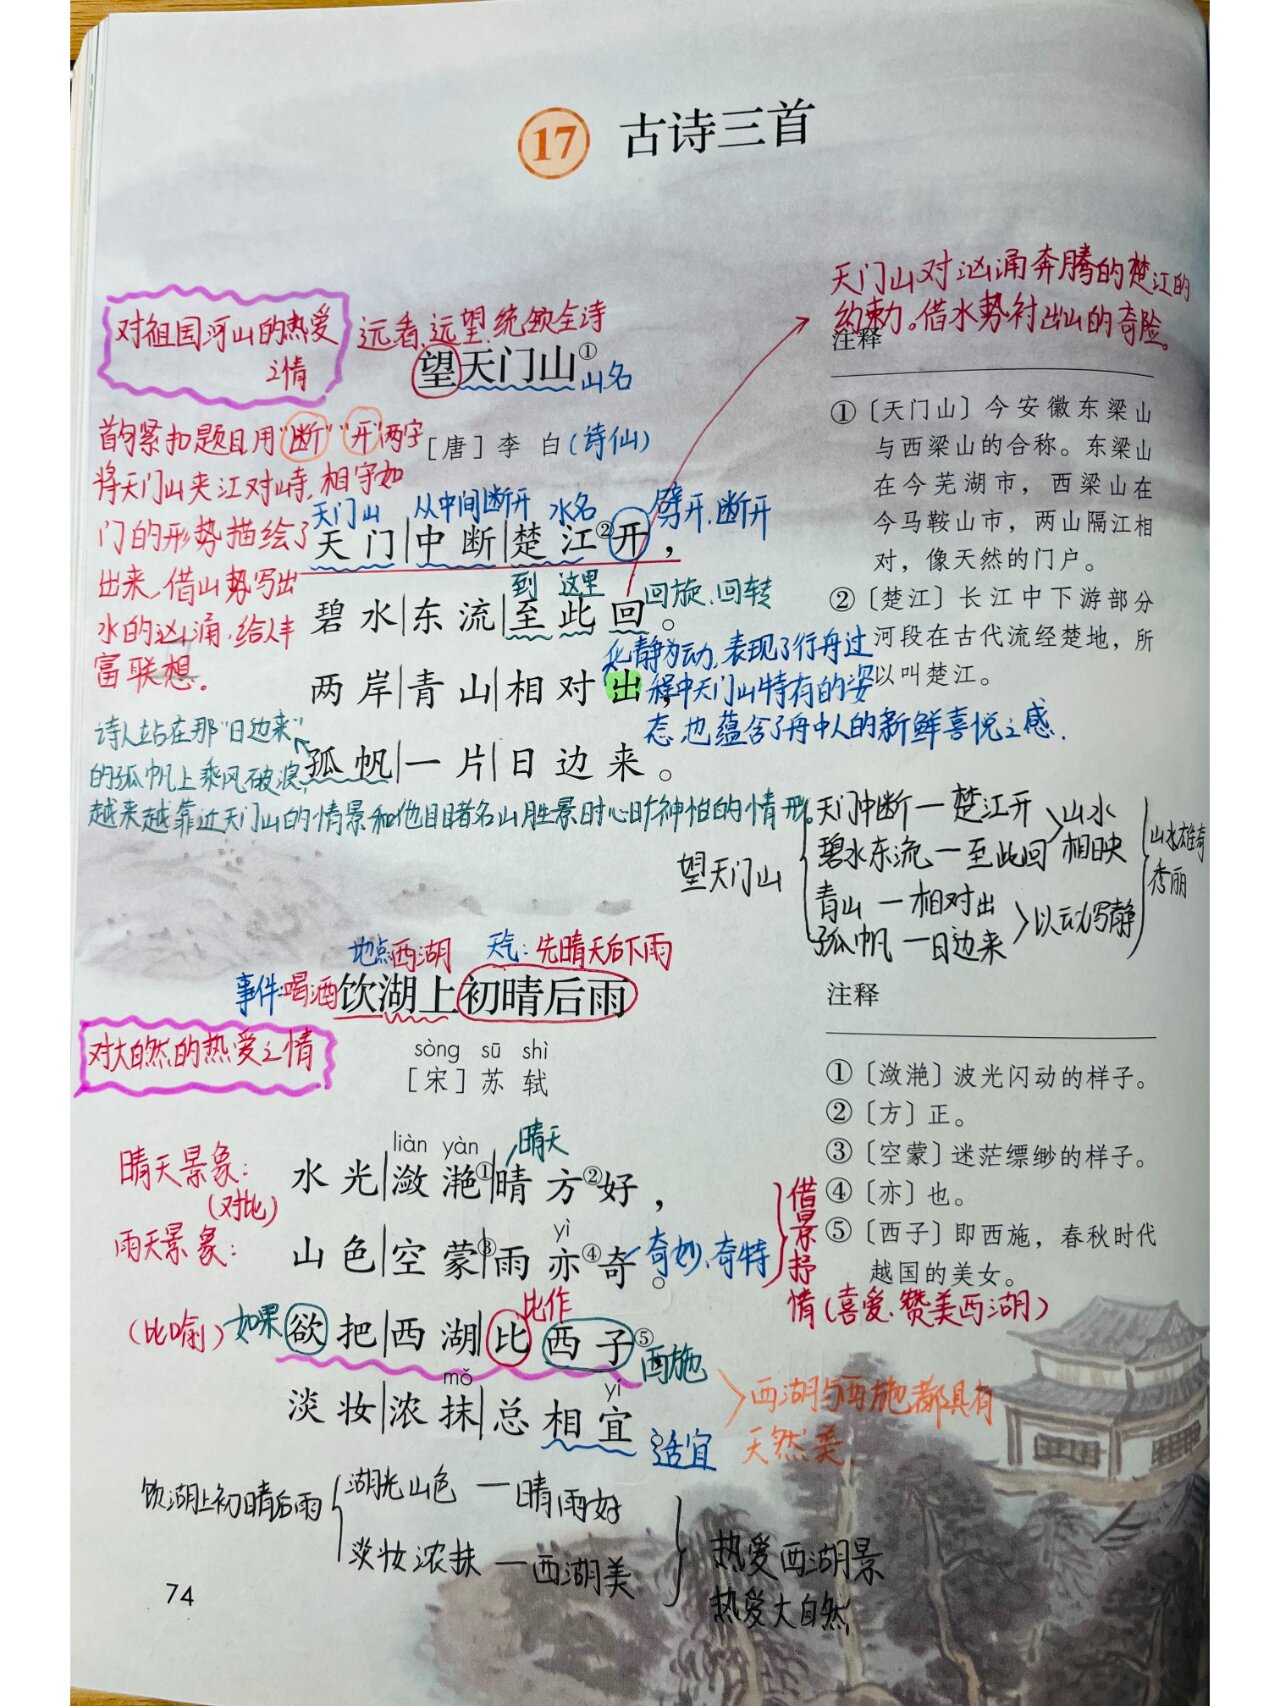 17 古诗三首
天门山对汹涌奔腾的楚江的
约束力。借水势衬出山的奇险。
对祖国河山的热爱
之情
远看、远望,统领全诗
望天门山①
山名
[唐]李 白(诗仙)
首句紧扣题目用“断”“开”两字
将天门山夹江对峙,相守如
门的形势描绘了
出来,借山势写出
水的汹涌,给人丰
富联想。
天门山 从中间断开 水名 劈开、断开
天门|中断|楚江②开,
到 这里
碧水|东流|至此回。
回旋、回转
化静为动,表现了行舟过
程中天门山特有的姿
态,也蕴含了舟中人的新鲜喜悦之感.
两岸|青山|相对出,
孤帆|一片|日边来。
诗人站在那“日边来”
的孤帆上乘风破浪,
越来越靠近天门山的情景和他目睹名山胜景时心旷神怡的情形。
注释
①〔天门山〕今安徽东梁山
与西梁山的合称。东梁山
在今芜湖市,西梁山在
今马鞍山市,两山隔江相
对,像天然的门户。
②〔楚江〕长江中下游部分
河段在古代流经楚地,所
以叫楚江。
望天门山
天门中断—楚江开
碧水东流—至此回
山水
相映
青山—相对出
孤帆—日边来
以动写静
山水雄奇
秀丽
地点:西湖 天气:先晴天后下雨
事件:喝酒
饮湖上初晴后雨
对大自然的热爱之情
sòng sū shì
[宋]苏 轼
晴天
liàn yàn
晴天景象:
水光|潋滟①|晴方②好,
(对比)
雨天景象:
yì
山色|空蒙③|雨亦④奇。
奇妙、奇特
借景抒
情(喜爱、赞美西湖)
比作
(比喻) 如果
欲把|西湖|比西子⑤
西施
mǒ yí
淡妆|浓抹|总相宜
适宜
西湖与西施都具有
天然美.
注释
①〔潋滟〕波光闪动的样子。
②〔方〕正。
③〔空蒙〕迷茫缥缈的样子。
④〔亦〕也。
⑤〔西子〕即西施,春秋时代
越国的美女。
饮湖上初晴后雨
湖光山色—晴雨好
淡妆浓抹—西湖美
热爱西湖景
热爱大自然
74